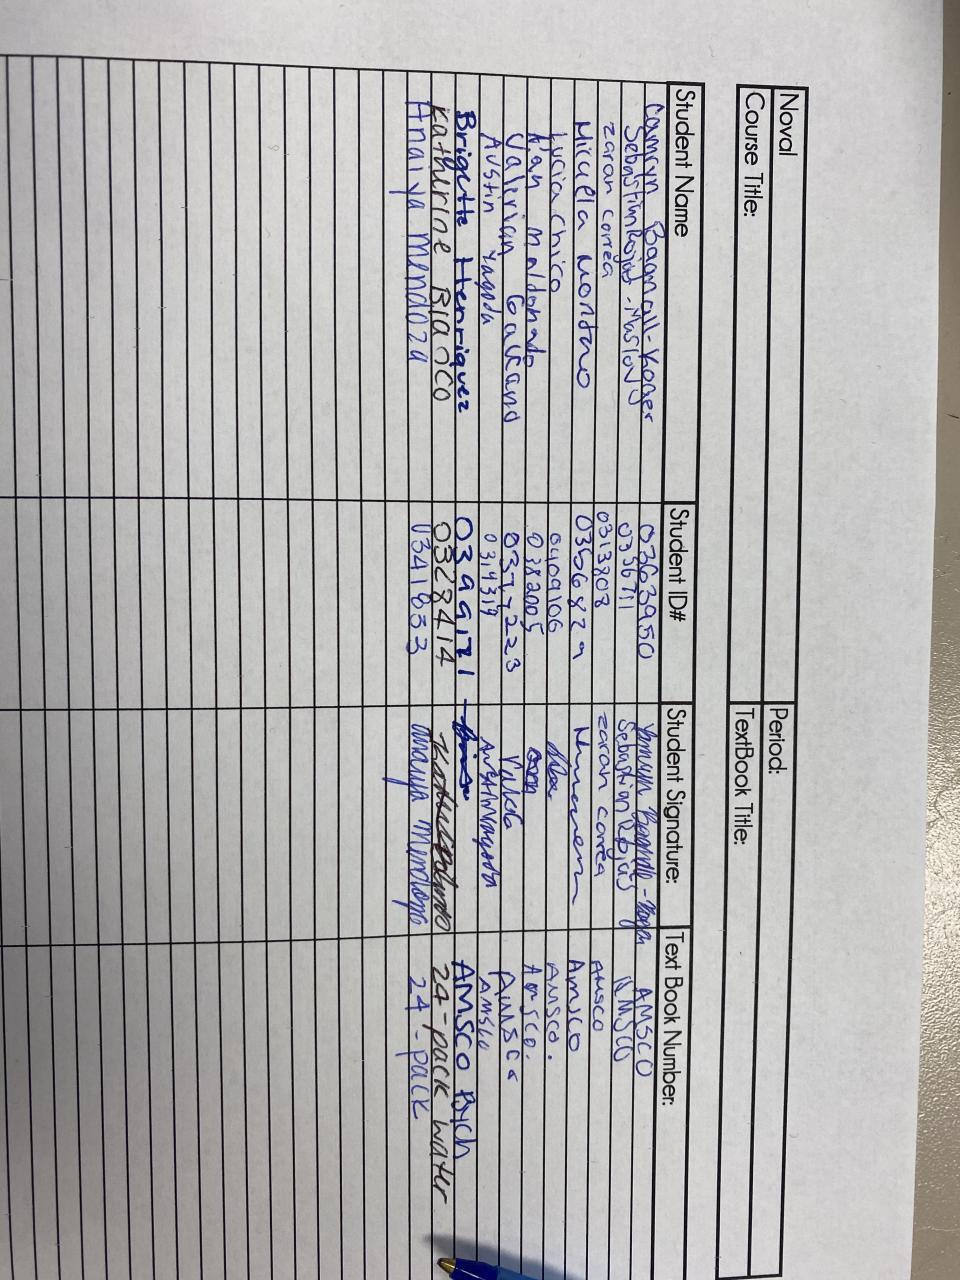 Noval Period:
Course Title: TextBook Title:
Student Name Student ID# Student Signature: Text Book Number:
Camryn Bagnall-Koger 0363950 AMSCO
Sebastian Rojas - 0356711 Sebastian Rojas AMSCO
zaran correa zaran correa AMSCO
Micaela Montano 0356829 AMSCO
Lucia Chico 0409106 AMSCO.
maldonado 0382005 AMSCO.
Valerian Galeano AMSCO
Austin Yagoda Austin Yagoda AMSCO
Brigette Henriquez 0399171 AMSCO Psych
Katherine Blanco 0328414 24-pack water
Anaiya Mendoza 0341853 anaiya mendoza 24-pack